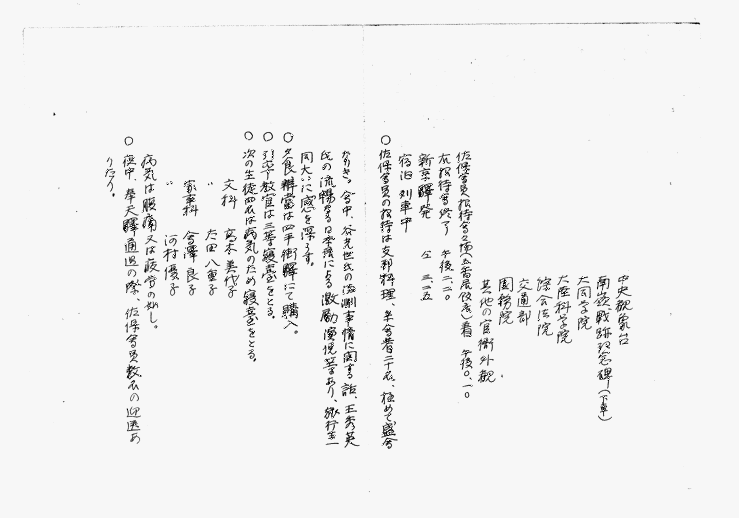 中央観象台
南嶺戦跡記念碑（下車）
大同学院
大陸科学院
綜合法院
交通部
国務院
其他の官衙外観
佐保会員招待会々場 着 午後〇、一〇
右招待会終了 午後二、二〇
新京驛発 仝 三、三五
宿泊 列車中
○ 佐保会員の招待は支那料理、来会者二十名、極めて盛会
なりき。会中、谷光世氏の満洲事情に関する話、王秀英
氏の流暢なる日本語による激励演説等あり、旅行生一
同大いに感を深うす。
○ 夕食辨當は四平街驛にて購入。
○ 引率教官は三等寝臺をとる。
○ 次の生徒四名は病気のため寝臺をとる。
文科 高木美代子
〃 太田八重子
家事科 會澤良子
〃 河村優子
病気は腹痛又は疲労の如し。
○ 夜中、奉天驛通過の際、佐保会員数名の迎送あ
りたり。